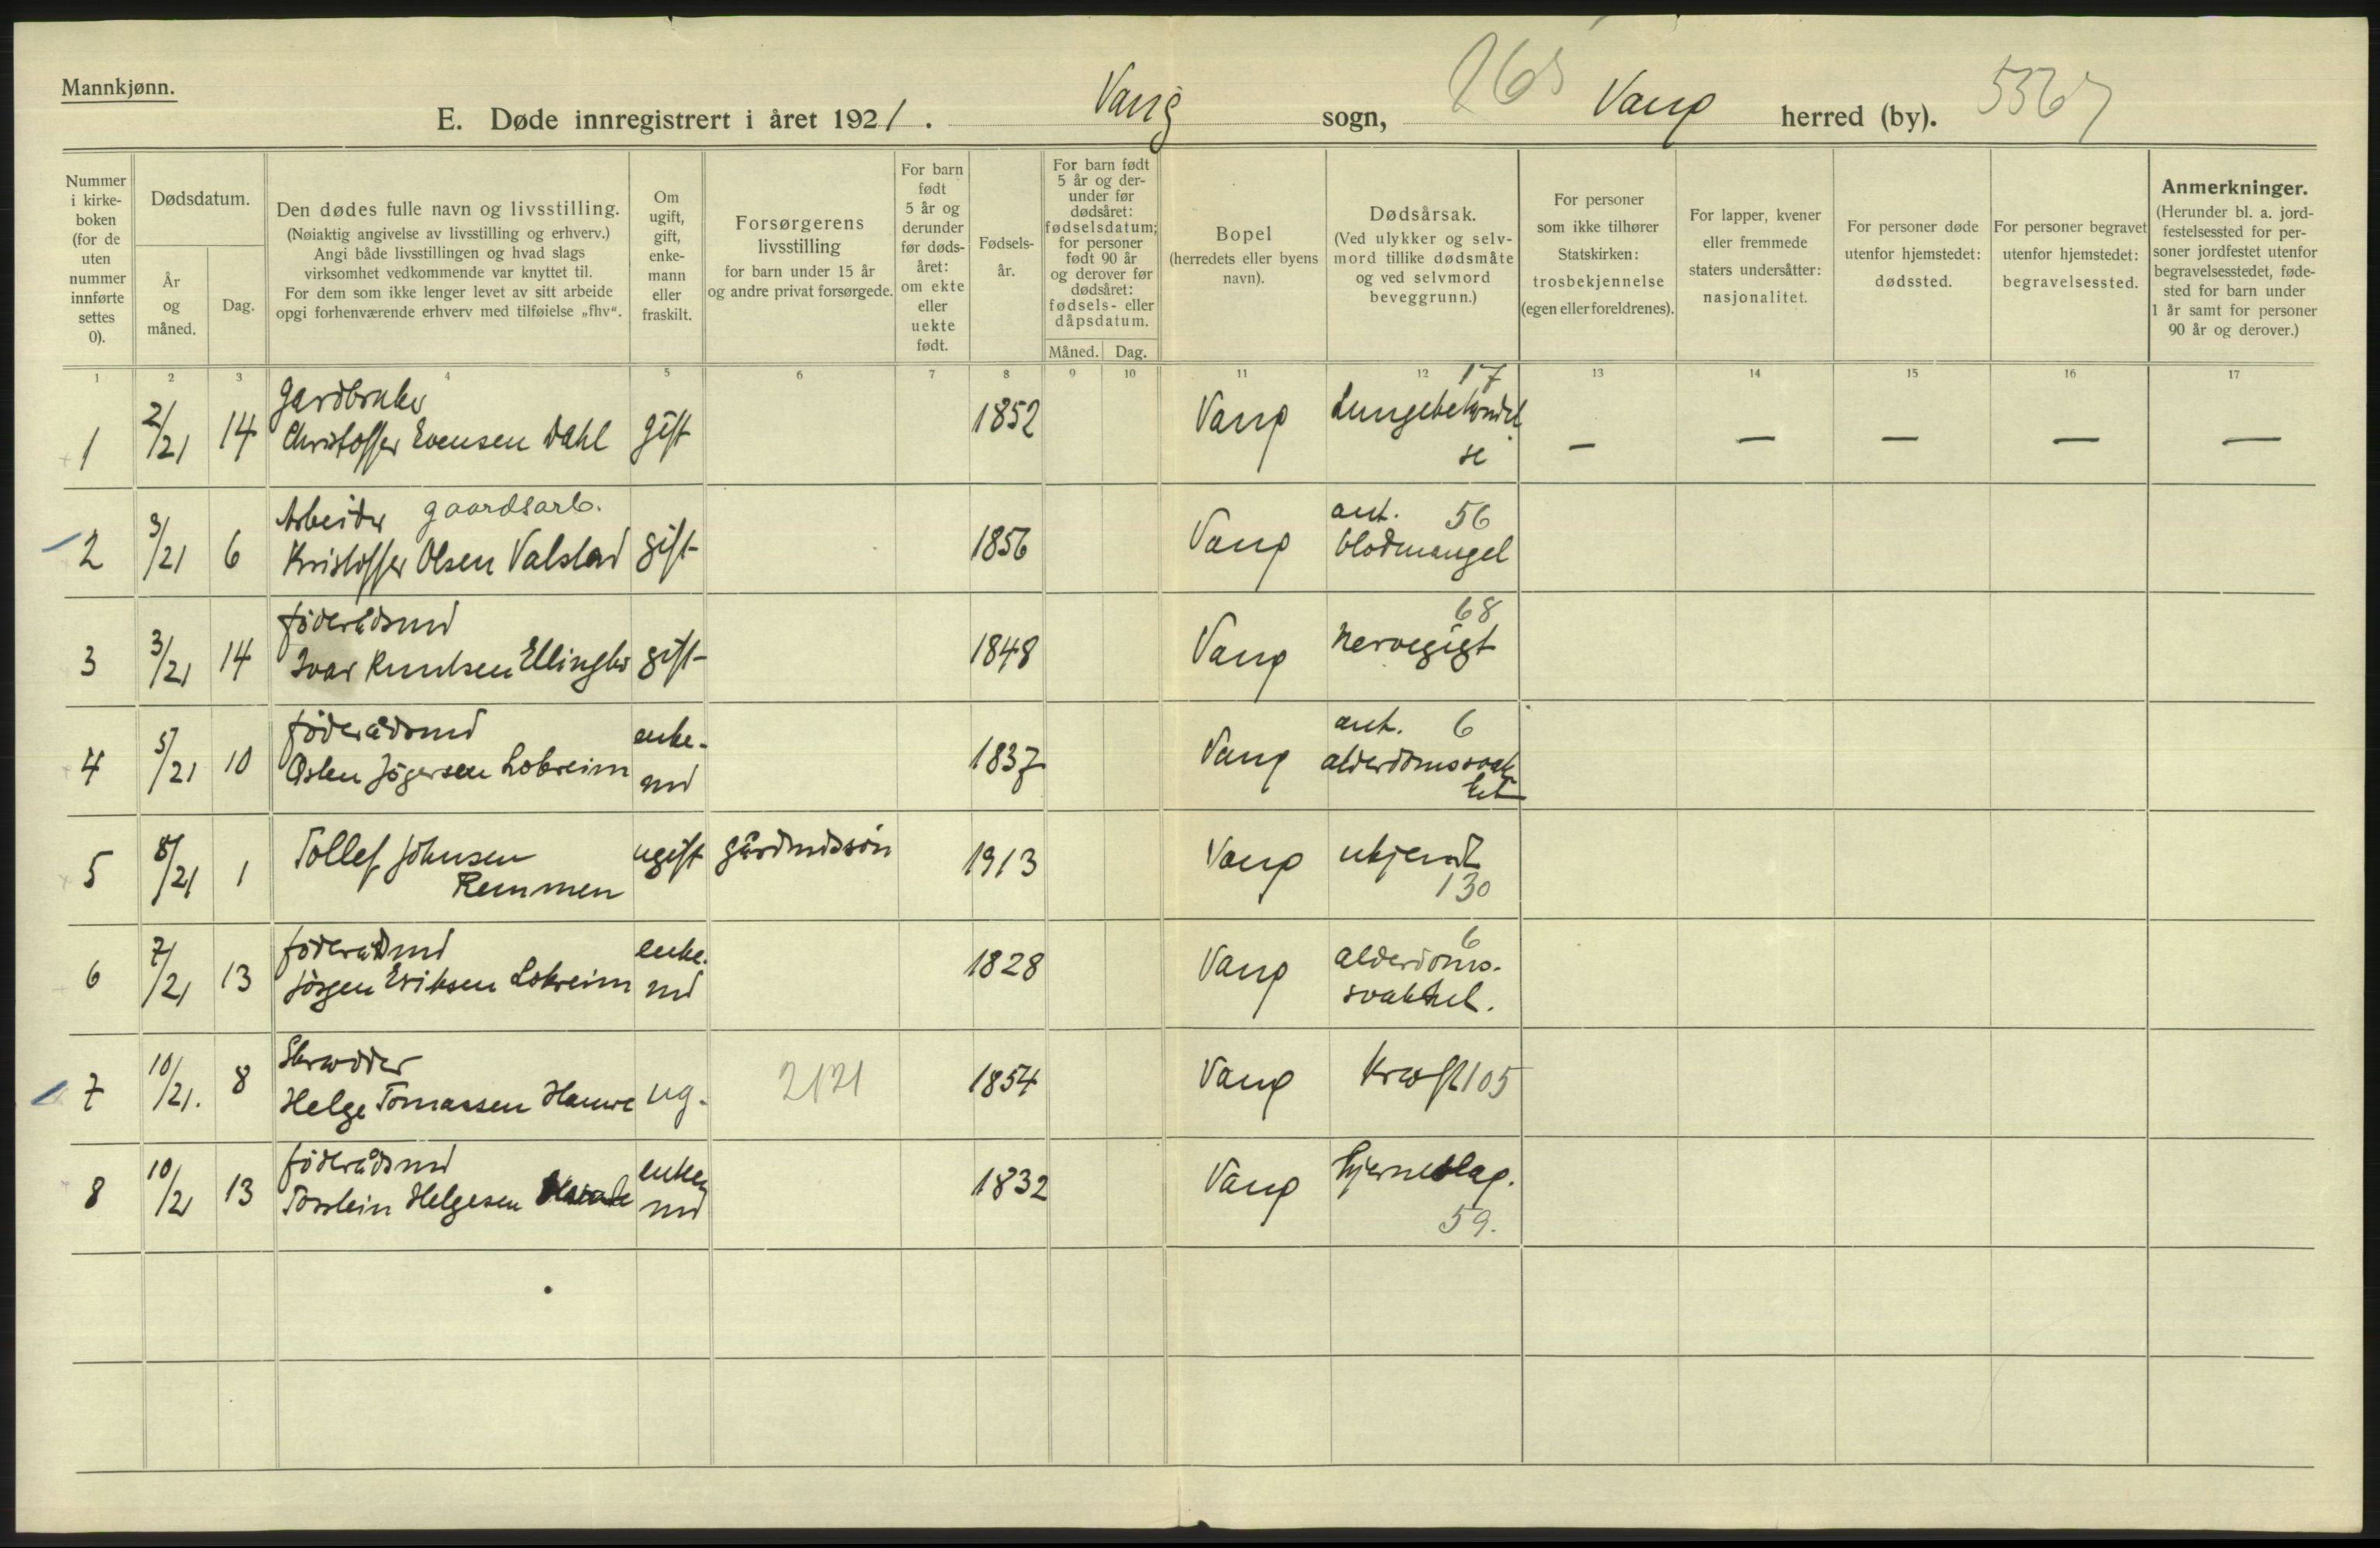 Mannkjønn.
E. Døde innregistrert i året 1921. Vang sogn, Vang herred (by). 5367
Nummer i kirke-boken (for de uten nummer innførte settes 0).
Dødsdatum.
År og måned.
Dag.
Den dødes fulle navn og livsstilling.
(Nøiaktig angivelse av livsstilling og erhverv.)
Angi både livsstillingen og hvad slags
virksomhet vedkommende var knyttet til.
For dem som ikke lenger levet av sitt arbeide
opgi forhenværende erhverv med tilføielse „fhv“.
Om ugift, gift, enke-mann eller fraskilt.
Forsørgerens
livsstilling
for barn under 15 år
og andre privat forsørgede.
For barn født 5 år og derunder før døds-året: om ekte eller uekte født.
Fødsels-
år.
For barn født 5 år og der-under før dødsåret: fødselsdatum; for personer født 90 år og derover før dødsåret: fødsels- eller dåpsdatum.
Måned. Dag.
Bopel
(herredets eller byens
navn).
Dødsårsak.
(Ved ulykker og selv-
mord tillike dødsmåte
og ved selvmord
beveggrunn.)
For personer
som ikke tilhører
Statskirken:
trosbekjennelse
(egen eller foreldrenes).
For lapper, kvener
eller fremmede
staters undersåtter:
nasjonalitet.
For personer døde
utenfor hjemstedet:
dødssted.
For personer begravet
utenfor hjemstedet:
begravelsessted.
Anmerkninger.
(Herunder bl. a. jord-
festelsessted for per-
soner jordfestet utenfor
begravelsesstedet, føde-
sted for barn under
1 år samt for personer
90 år og derover.)
1 2 3 4 5 6 7 8 9 10 11 12 13 14 15 16 17
1 2/21 14 Gardbruker Christoffer Evensen Dahl gift 1852 Vang 17 Lungebetændelse — — — — —
2 3/21 6 Arbeider gaardsarb. Kristoffer Olsen Valstad gift 1856 Vang ant. 56 blodmangel
3 3/21 14 föderådsmd Ivar Knutsen Ellingbø gift 1848 Vang 68 nervegigt
4 5/21 10 föderådsmd Jögersen Lokreim enke-md 1837 Vang ant. 6 alderdomssvakhet
5 8/21 1 Tollef Johnsen Remmen ugift gårdmdssön 1913 Vang ukjendt 130
6 7/21 13 föderådmd Jörgen Eriksen Lokreim enke-md 1828 Vang 6 alderdoms-svakhet.
7 10/21. 8 Skrædder Helge Tomassen ug. 2121 1854 Vang Kræft 105
8 10/21 13 föderådsmd Torstein Helgesen enke-md 1832 Vang hjerneslag. 59.